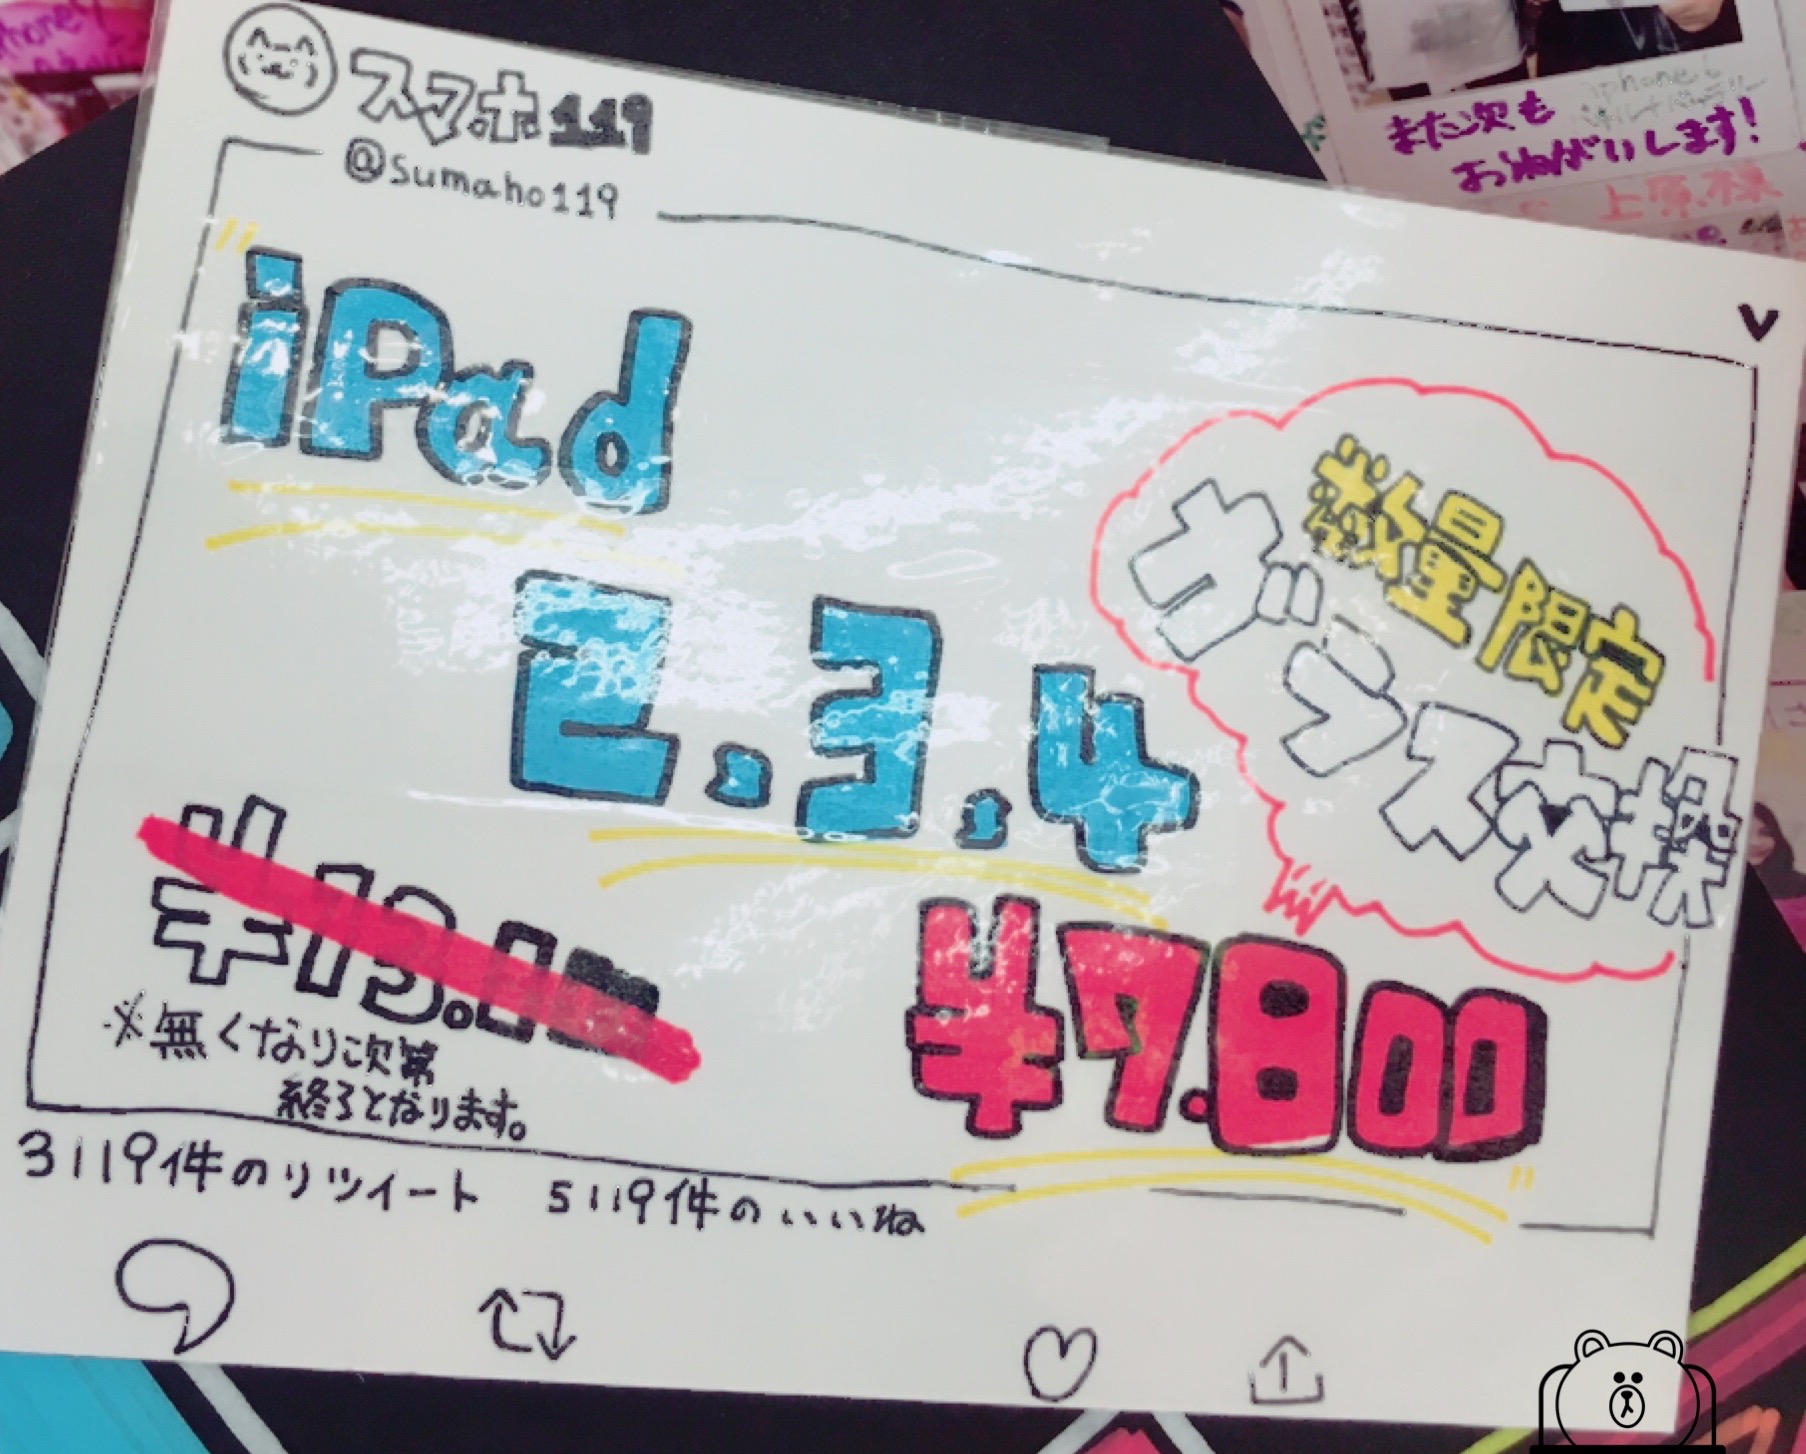 スマホ119
@sumaho119
iPad
2.3.4
数量限定
ガラス交換
¥7.800
※無くなり次第
終了となります。
3119件のリツイート 5119件のいいね
また次も
おねがいします!
上原様